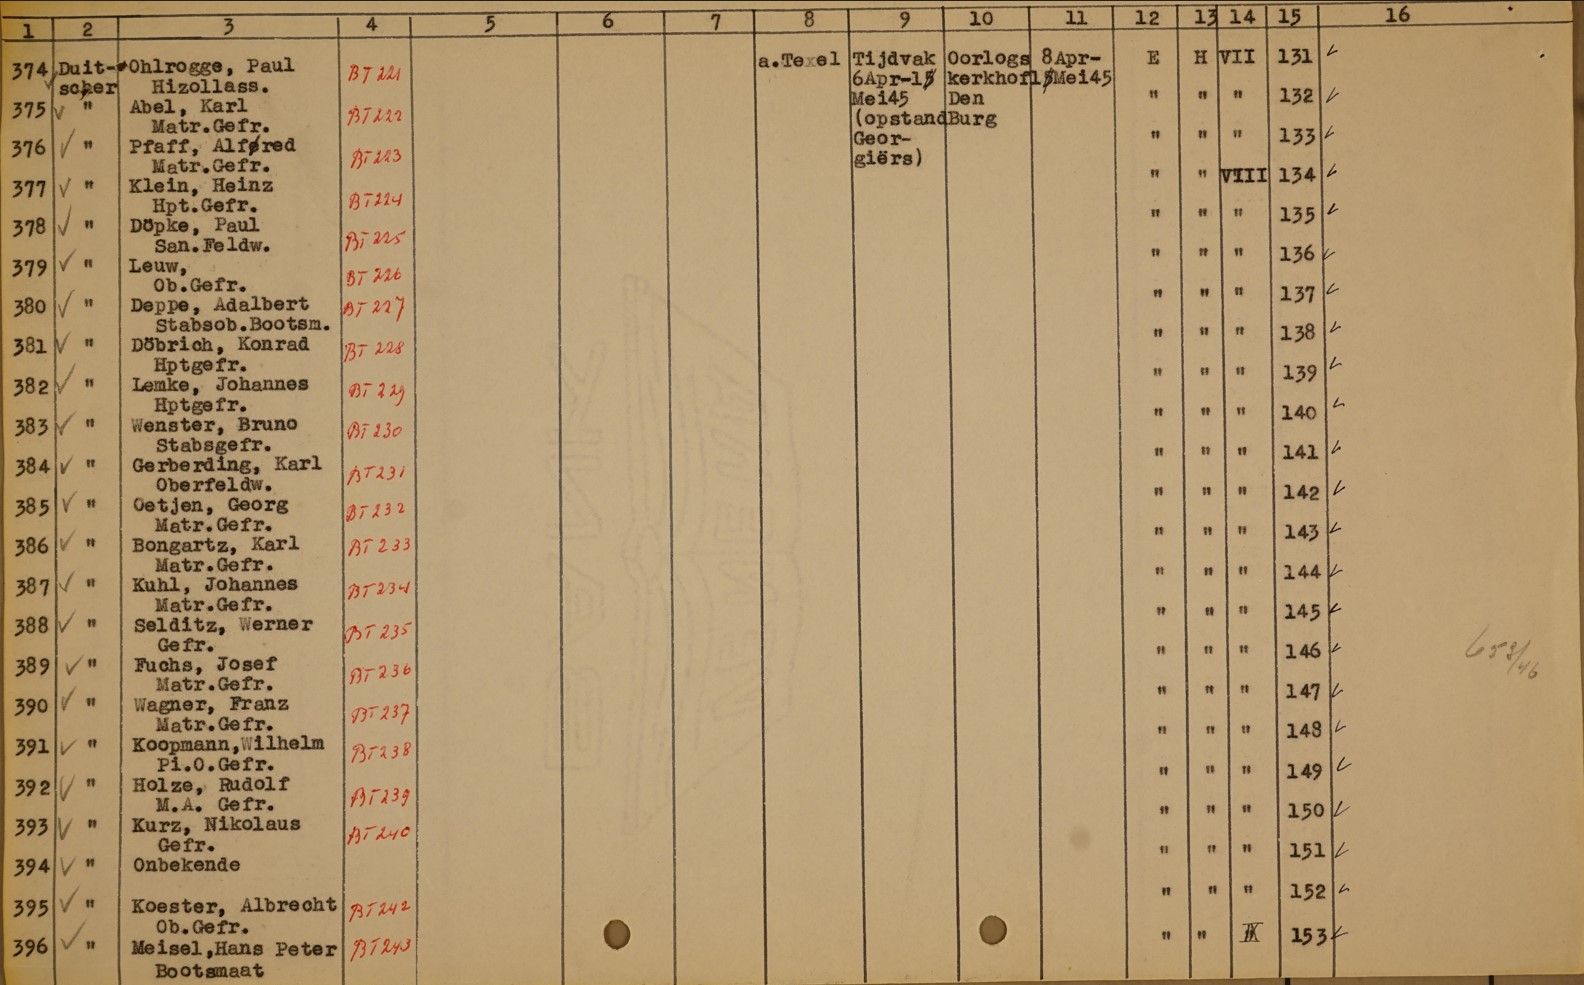 1 2 3 4 5 6 7 8 9 10 11 12 13 14 15 16
374 Duit- Ohlrogge, Paul BT 221 a.Texel Tijdvak Oorlogs 8Apr- E H VII 131
scher Hizollass. 6Apr-15 kerkhof 15Mei45
375 " Abel, Karl BT 222 Mei45 Den " " " 132
Matr.Gefr. (opstand Burg
376 " Pfaff, Alfred BT 223 Geor- " " " 133
Matr.Gefr. giërs)
377 " Klein, Heinz BT 224 " " VIII 134
Hpt.Gefr.
378 " Döpke, Paul BT 225 " " " 135
San.Feldw.
379 " Leuw, BT 226 " " " 136
Ob.Gefr.
380 " Deppe, Adalbert BT 227 " " " 137
Stabsob.Bootsm.
381 " Döbrich, Konrad BT 228 " " " 138
Hptgefr.
382 " Lemke, Johannes BT 229 " " " 139
Hptgefr.
383 " Wenster, Bruno BT 230 " " " 140
Stabsgefr.
384 " Gerberding, Karl BT 231 " " " 141
Oberfeldw.
385 " Oetjen, Georg BT 232 " " " 142
Matr.Gefr.
386 " Bongartz, Karl BT 233 " " " 143
Matr.Gefr.
387 " Kuhl, Johannes BT 234 " " " 144
Matr.Gefr.
388 " Selditz, Werner BT 235 " " " 145
Gefr.
389 " Fuchs, Josef BT 236 " " " 146
Matr.Gefr.
390 " Wagner, Franz BT 237 " " " 147
Matr.Gefr.
391 " Koopmann,Wilhelm BT 238 " " " 148
Pi.O.Gefr.
392 " Holze, Rudolf BT 239 " " " 149
M.A. Gefr.
393 " Kurz, Nikolaus BT 240 " " " 150
Gefr.
394 " Onbekende " " " 151
395 " Koester, Albrecht BT 242 " " " 152
Ob.Gefr.
396 " Meisel,Hans Peter BT 243 " " IX 153
Bootsmaat